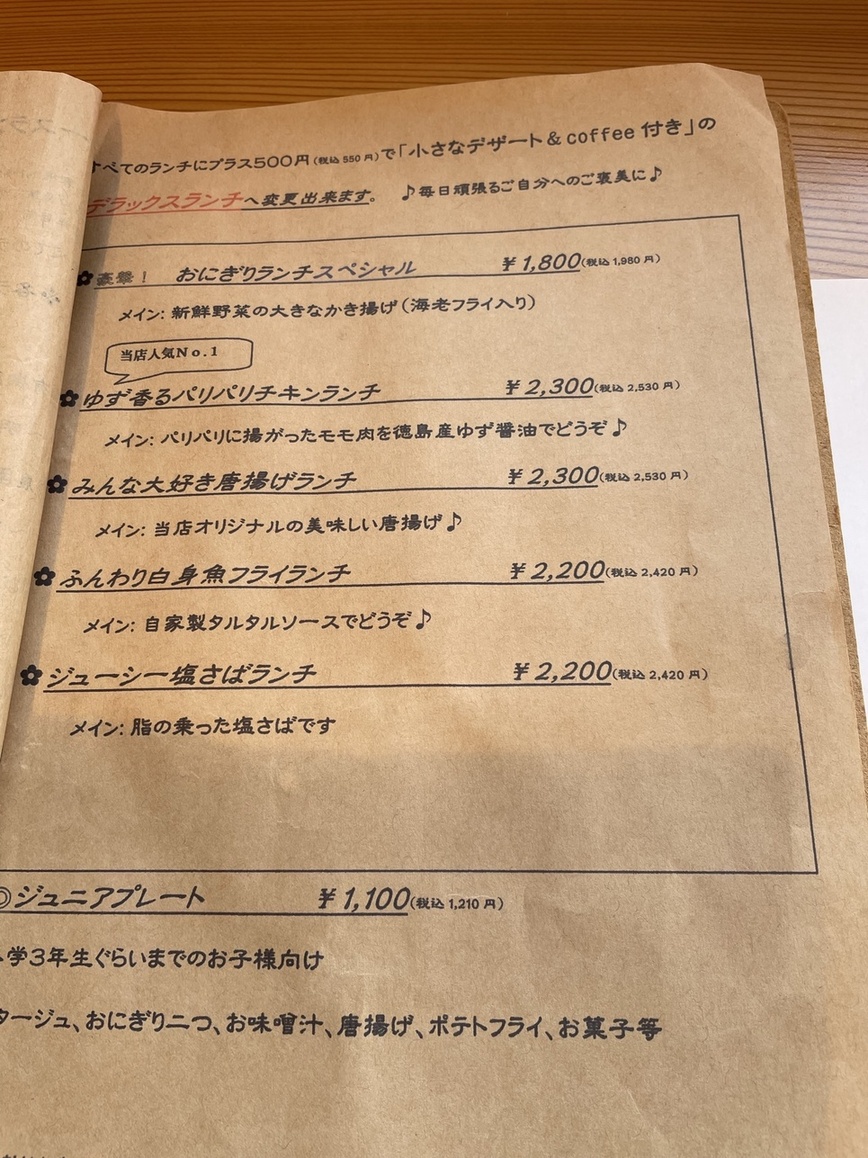 すべてのランチにプラス500円(税込 550 円)で「小さなデザート＆coffee 付き」の
デラックスランチへ変更出来ます。 ♪毎日頑張るご自分へのご褒美に♪
✿豪華！ おにぎりランチスペシャル ¥1,800(税込 1,980 円)
メイン: 新鮮野菜の大きなかき揚げ(海老フライ入り)
当店人気No.1
✿ゆず香るパリパリチキンランチ ¥2,300(税込 2,530 円)
メイン: パリパリに揚がったモモ肉を徳島産ゆず醤油でどうぞ♪
✿みんな大好き唐揚げランチ ¥2,300(税込 2,530 円)
メイン: 当店オリジナルの美味しい唐揚げ♪
✿ふんわり白身魚フライランチ ¥2,200(税込 2,420 円)
メイン: 自家製タルタルソースでどうぞ♪
✿ジューシー塩さばランチ ¥2,200(税込 2,420 円)
メイン: 脂の乗った塩さばです
◎ジュニアプレート ¥1,100(税込 1,210 円)
学3年生ぐらいまでのお子様向け
タージュ、おにぎり二つ、お味噌汁、唐揚げ、ポテトフライ、お菓子等